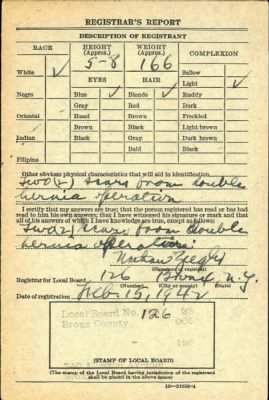 REGISTRAR'S REPORT
DESCRIPTION OF REGISTRANT
RACE HEIGHT (Approx.) WEIGHT (Approx.) COMPLEXION
White ✓ 5-8 166 Sallow
EYES HAIR Light ✓
Negro Blue ✓ Blonde ✓ Ruddy
Gray Red Dark
Oriental Hazel Brown Freckled
Brown Black Light brown
Indian Black Gray Dark brown
Bald Black
Filipino
Other obvious physical characteristics that will aid in identification
Two (2) scars from double
hernia operation
I certify that my answers are true; that the person registered has read or has had
read to him his own answers; that I have witnessed his signature or mark and that
all of his answers of which I have knowledge are true, except as follows:
Two (2) scars from double
hernia operation
(Signature of registrar)
Registrar for Local Board 126 Bronx N.Y.
(Number) (City or county) (State)
Date of registration Feb. 15, 1942
Local Board No. 126
Bronx County
(STAMP OF LOCAL BOARD)
(The stamp of the Local Board having jurisdiction of the registrant
shall be placed in the above space)